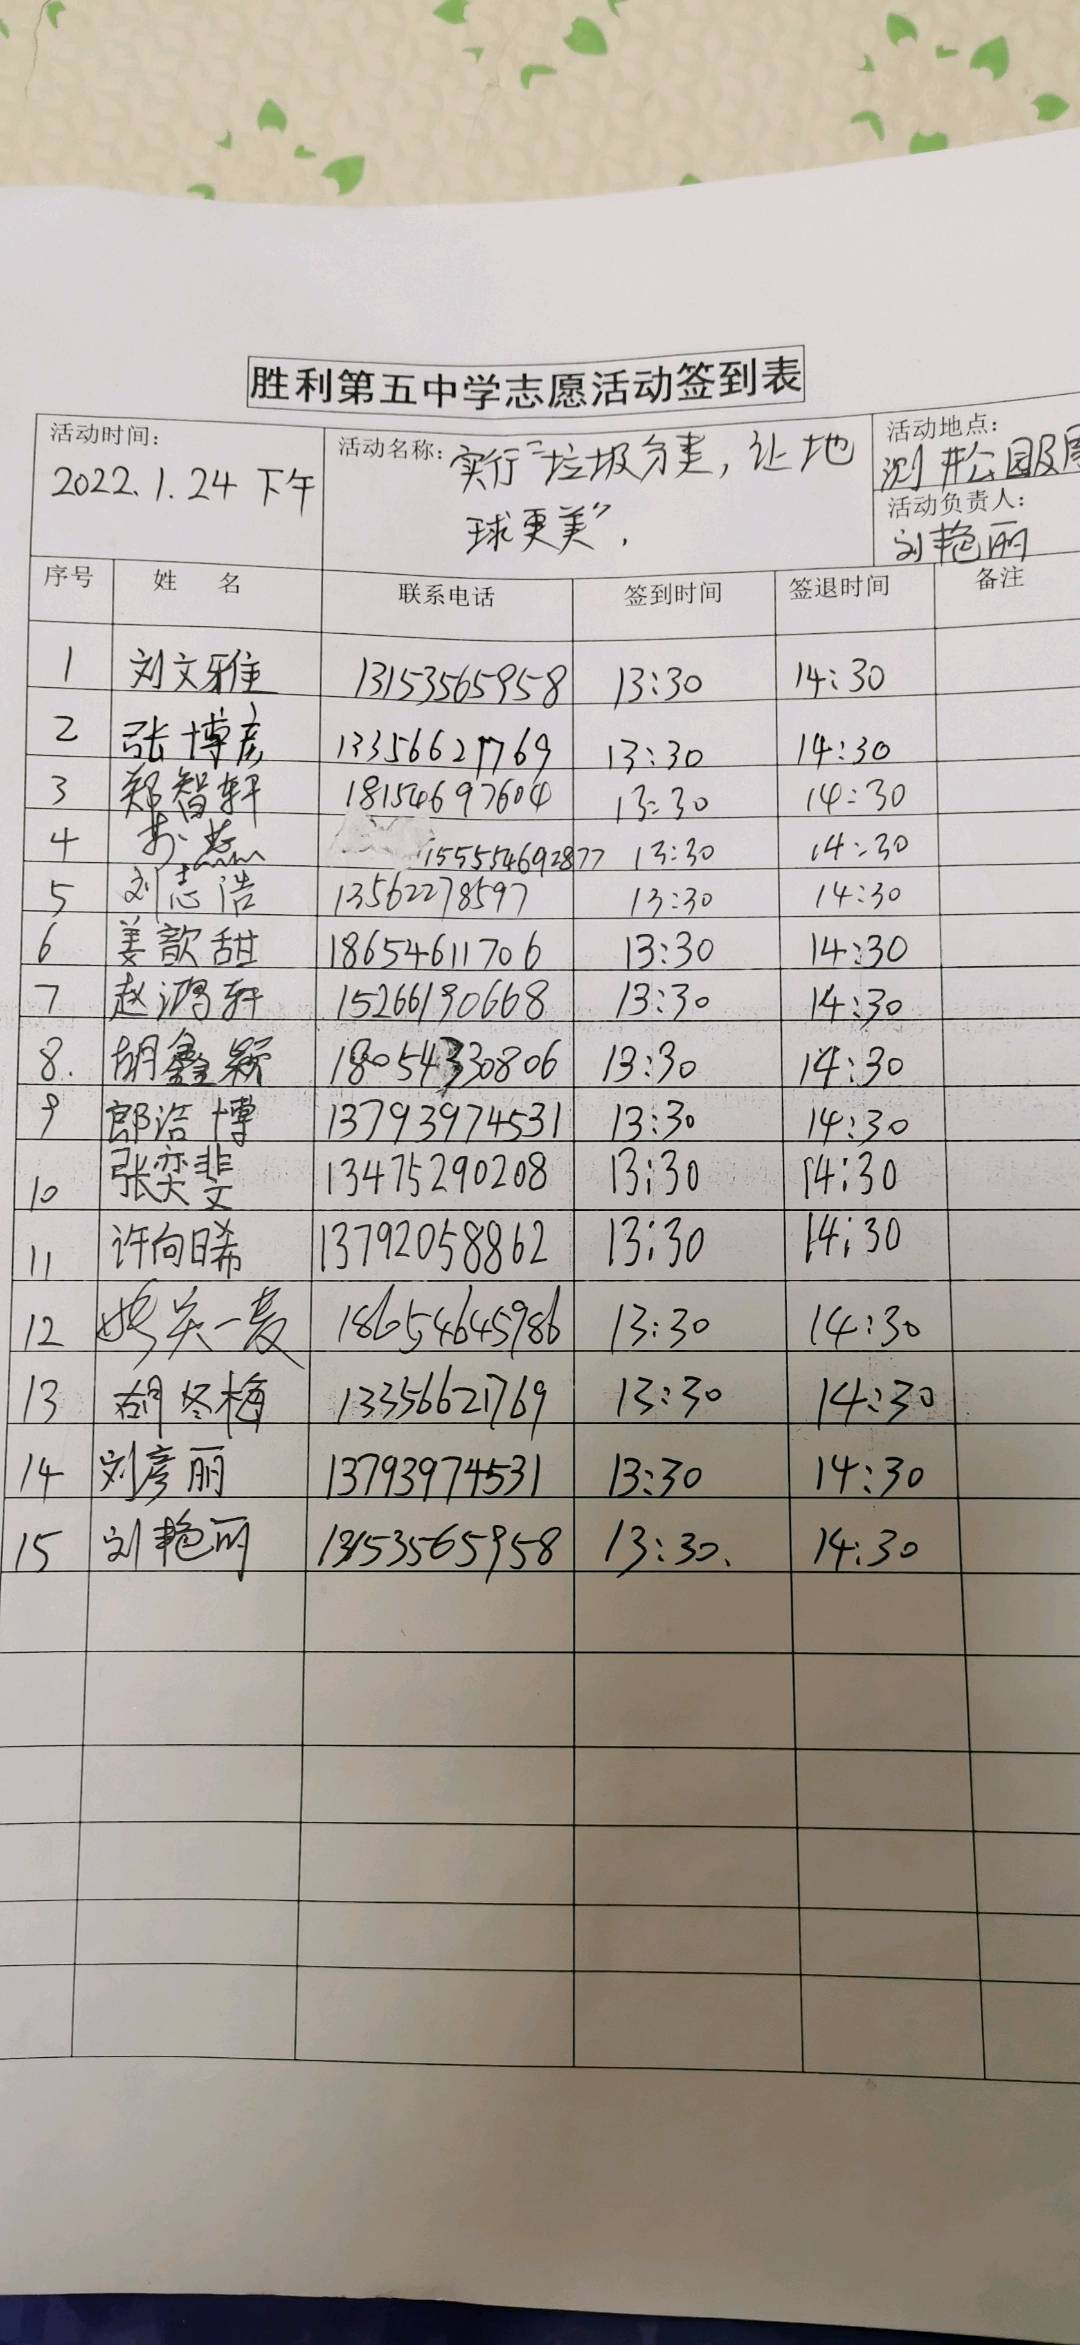 胜利第五中学志愿活动签到表
活动时间:
2022.1.24 下午
活动名称: 实行"垃圾分类,让地
球更美".
活动地点:
测井公园及周
活动负责人:
刘艳丽
序号 姓 名 联系电话 签到时间 签退时间 备注
1 刘文雅 13153565958 13:30 14:30
2 张博彦 13356621769 13:30 14:30
3 郑智轩 18154697604 13:30 14:30
4 13:30 14:30
5 刘志浩 13562278597 13:30 14:30
6 姜歆甜 18654611706 13:30 14:30
7 赵鸿轩 15266190668 13:30 14:30
8. 胡鑫颖 18054330806 13:30 14:30
9 郎浩博 13793974531 13:30 14:30
10 张奕斐 13475290208 13:30 14:30
11 许向晞 13792058862 13:30 14:30
12 18654645986 13:30 14:30
13 胡冬梅 13356621769 13:30 14:30
14 刘彦丽 13793974531 13:30 14:30
15 刘艳丽 13153565958 13:30. 14:30